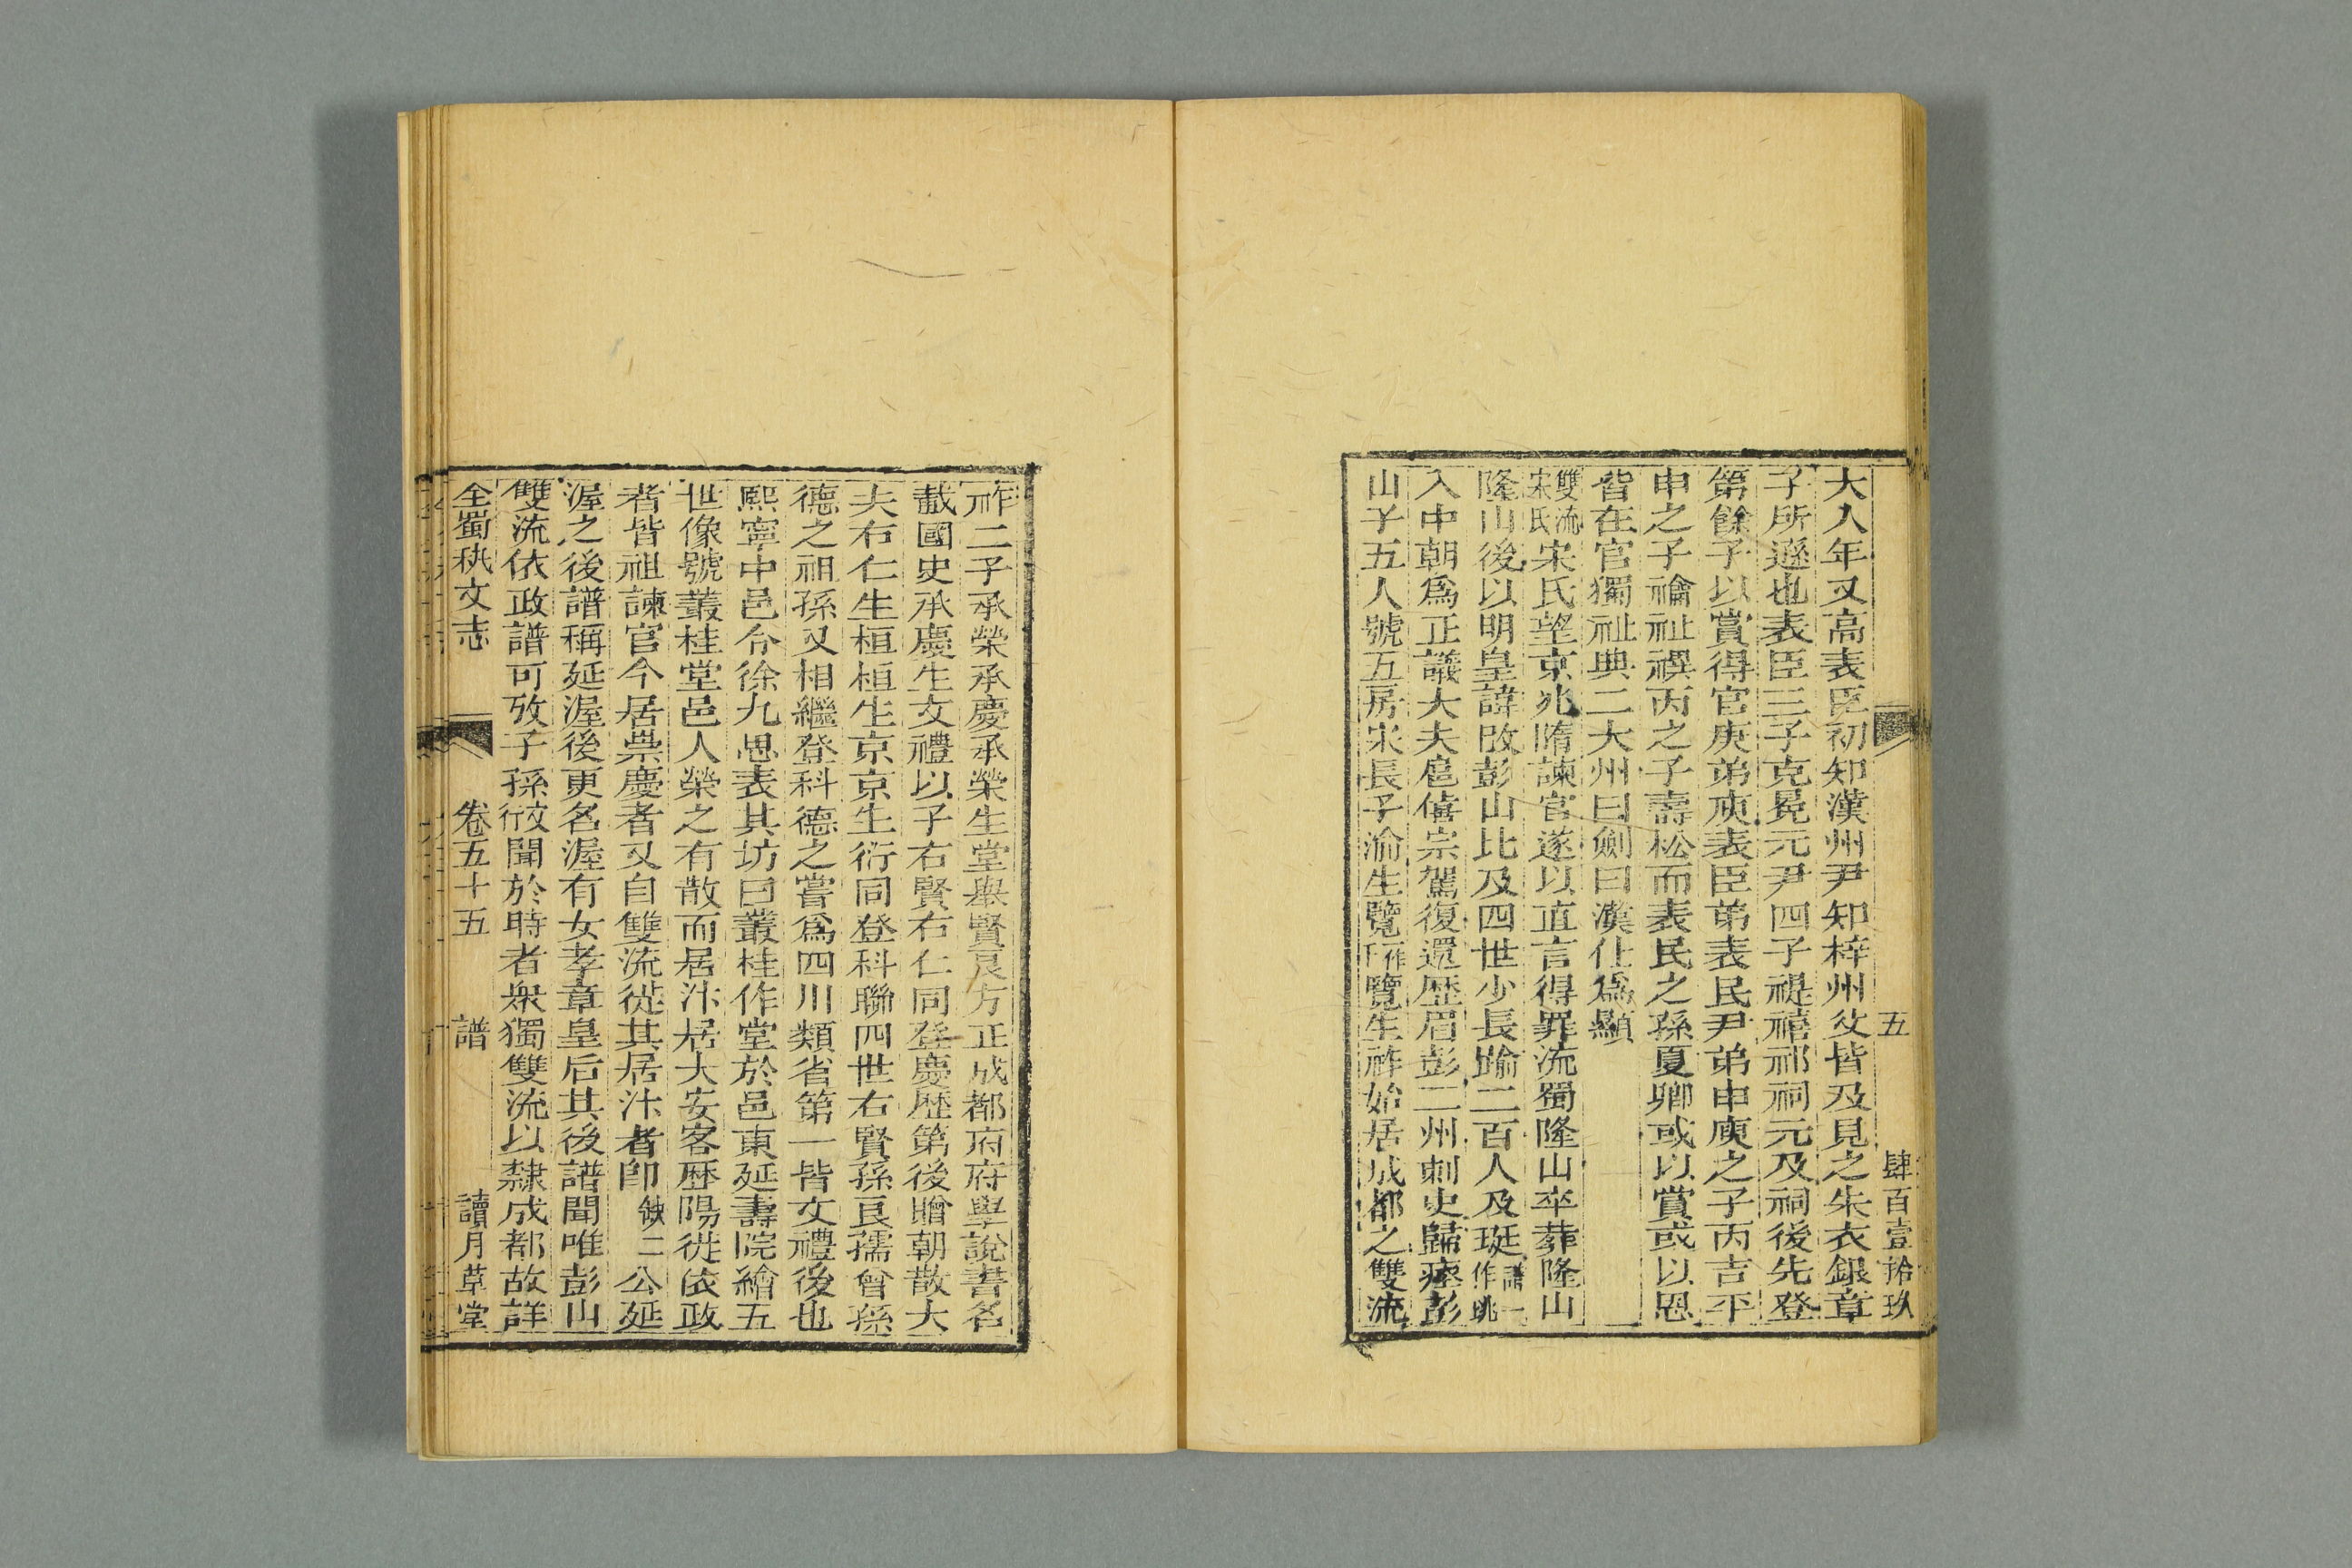 五　肆百壹拾玖
大人年又高表臣初知漢州尹知梓州父皆及見之朱衣銀章
子所遜也表臣三子克冕元尹四子禔禧祁祠元及祠後先登
第餘子以賞得官庚弟庾表臣弟表民尹弟申庾之子丙吉平
申之子禴祉禩丙之子壽松而表民之孫夏卿或以賞或以恩
皆在官獨祉典二大州曰劍曰漢仕爲顯
雙流宋氏宋氏望京兆隋諫官遂以直言得罪流蜀隆山卒葬隆山
隆山後以明皇諱改彭山比及四世少長踰二百人及珽譜一作眺
入中朝爲正議大夫扈僖宗駕復還歷眉彭二州刺史歸瘞彭
山子五人號五房宋長子渝生覽覽生祚始居成都之雙流
祚二子承榮承慶承榮生堂舉賢良方正成都府府學說書名
載國史承慶生文禮以子右賢右仁同登慶歷第後贈朝散大
夫右仁生桓桓生京京生衍同登科聯四世右賢孫良孺曾孫
德之祖孫又相繼登科德之嘗爲四川類省第一皆文禮後也
熙寧中邑令徐九思表其坊曰叢桂作堂於邑東延壽院繪五
世像號叢桂堂邑人榮之有散而居汴居大安客歷陽徙依政
者皆祖諫官今居崇慶者又自雙流徙其居汴者卽缺二公延
渥之後譜稱延渥後更名渥有女孝章皇后其後譜聞唯彭山
雙流依政譜可攷子孫行文聞於時者衆獨雙流以隸成都故詳
全蜀秇文志　卷五十五　譜　讀月草堂